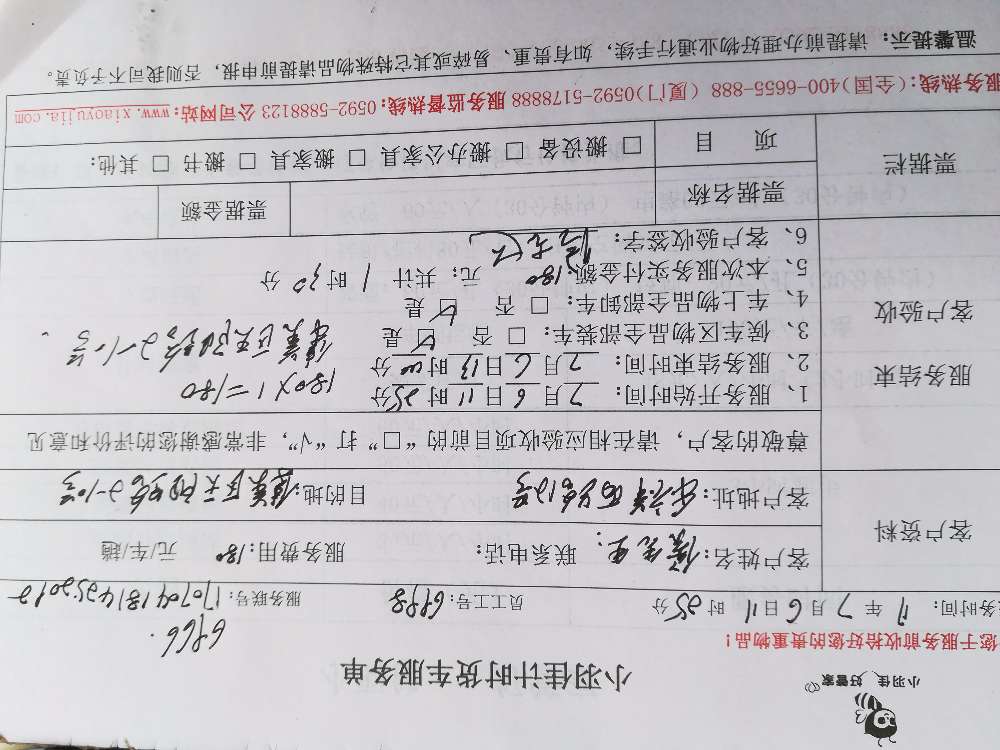 小羽佳 好管家
小羽佳计时货车服务单
您于服务前收拾好您的贵重物品!
6966.
务时间: 17 年 7 月 6 日 11 时 25 分 员工工号: 6988 服务联号:
客户资料
客户姓名: 先生 联系电话: 服务费用: 180 元/车/趟
客户地址: 目的地:
尊敬的客户, 请在相应验收项目前的“□”打“√”, 非常感谢您的评价和意见
服务结束
客户验收
1、服务开始时间: 7 月 6 日 11 时 25 分 180×1=180
2、服务结束时间: 7 月 6 日 13 时 00 分
3、候车区物品全部装车: □ 否 ☑ 是
4、车上物品全部卸车: □ 否 ☑ 是
5、本次服务实付金额: 180 元; 共计 1 时 30 分
6、客户验收签字:
票据栏
票据名称 票据金额
项 目 □ 搬设备 □ 搬办公家具 □ 搬家具 □ 搬书 □ 其他:
服务热线:(全国)400-6655-888 (厦门)0592-5178888 服务监督热线:0592-5888123 公司网站:www.xiaoyujia.com
温馨提示: 请提前办理好物业通行手续, 如有贵重、易碎或其它特殊物品请提前申报, 否则我司不予负责。